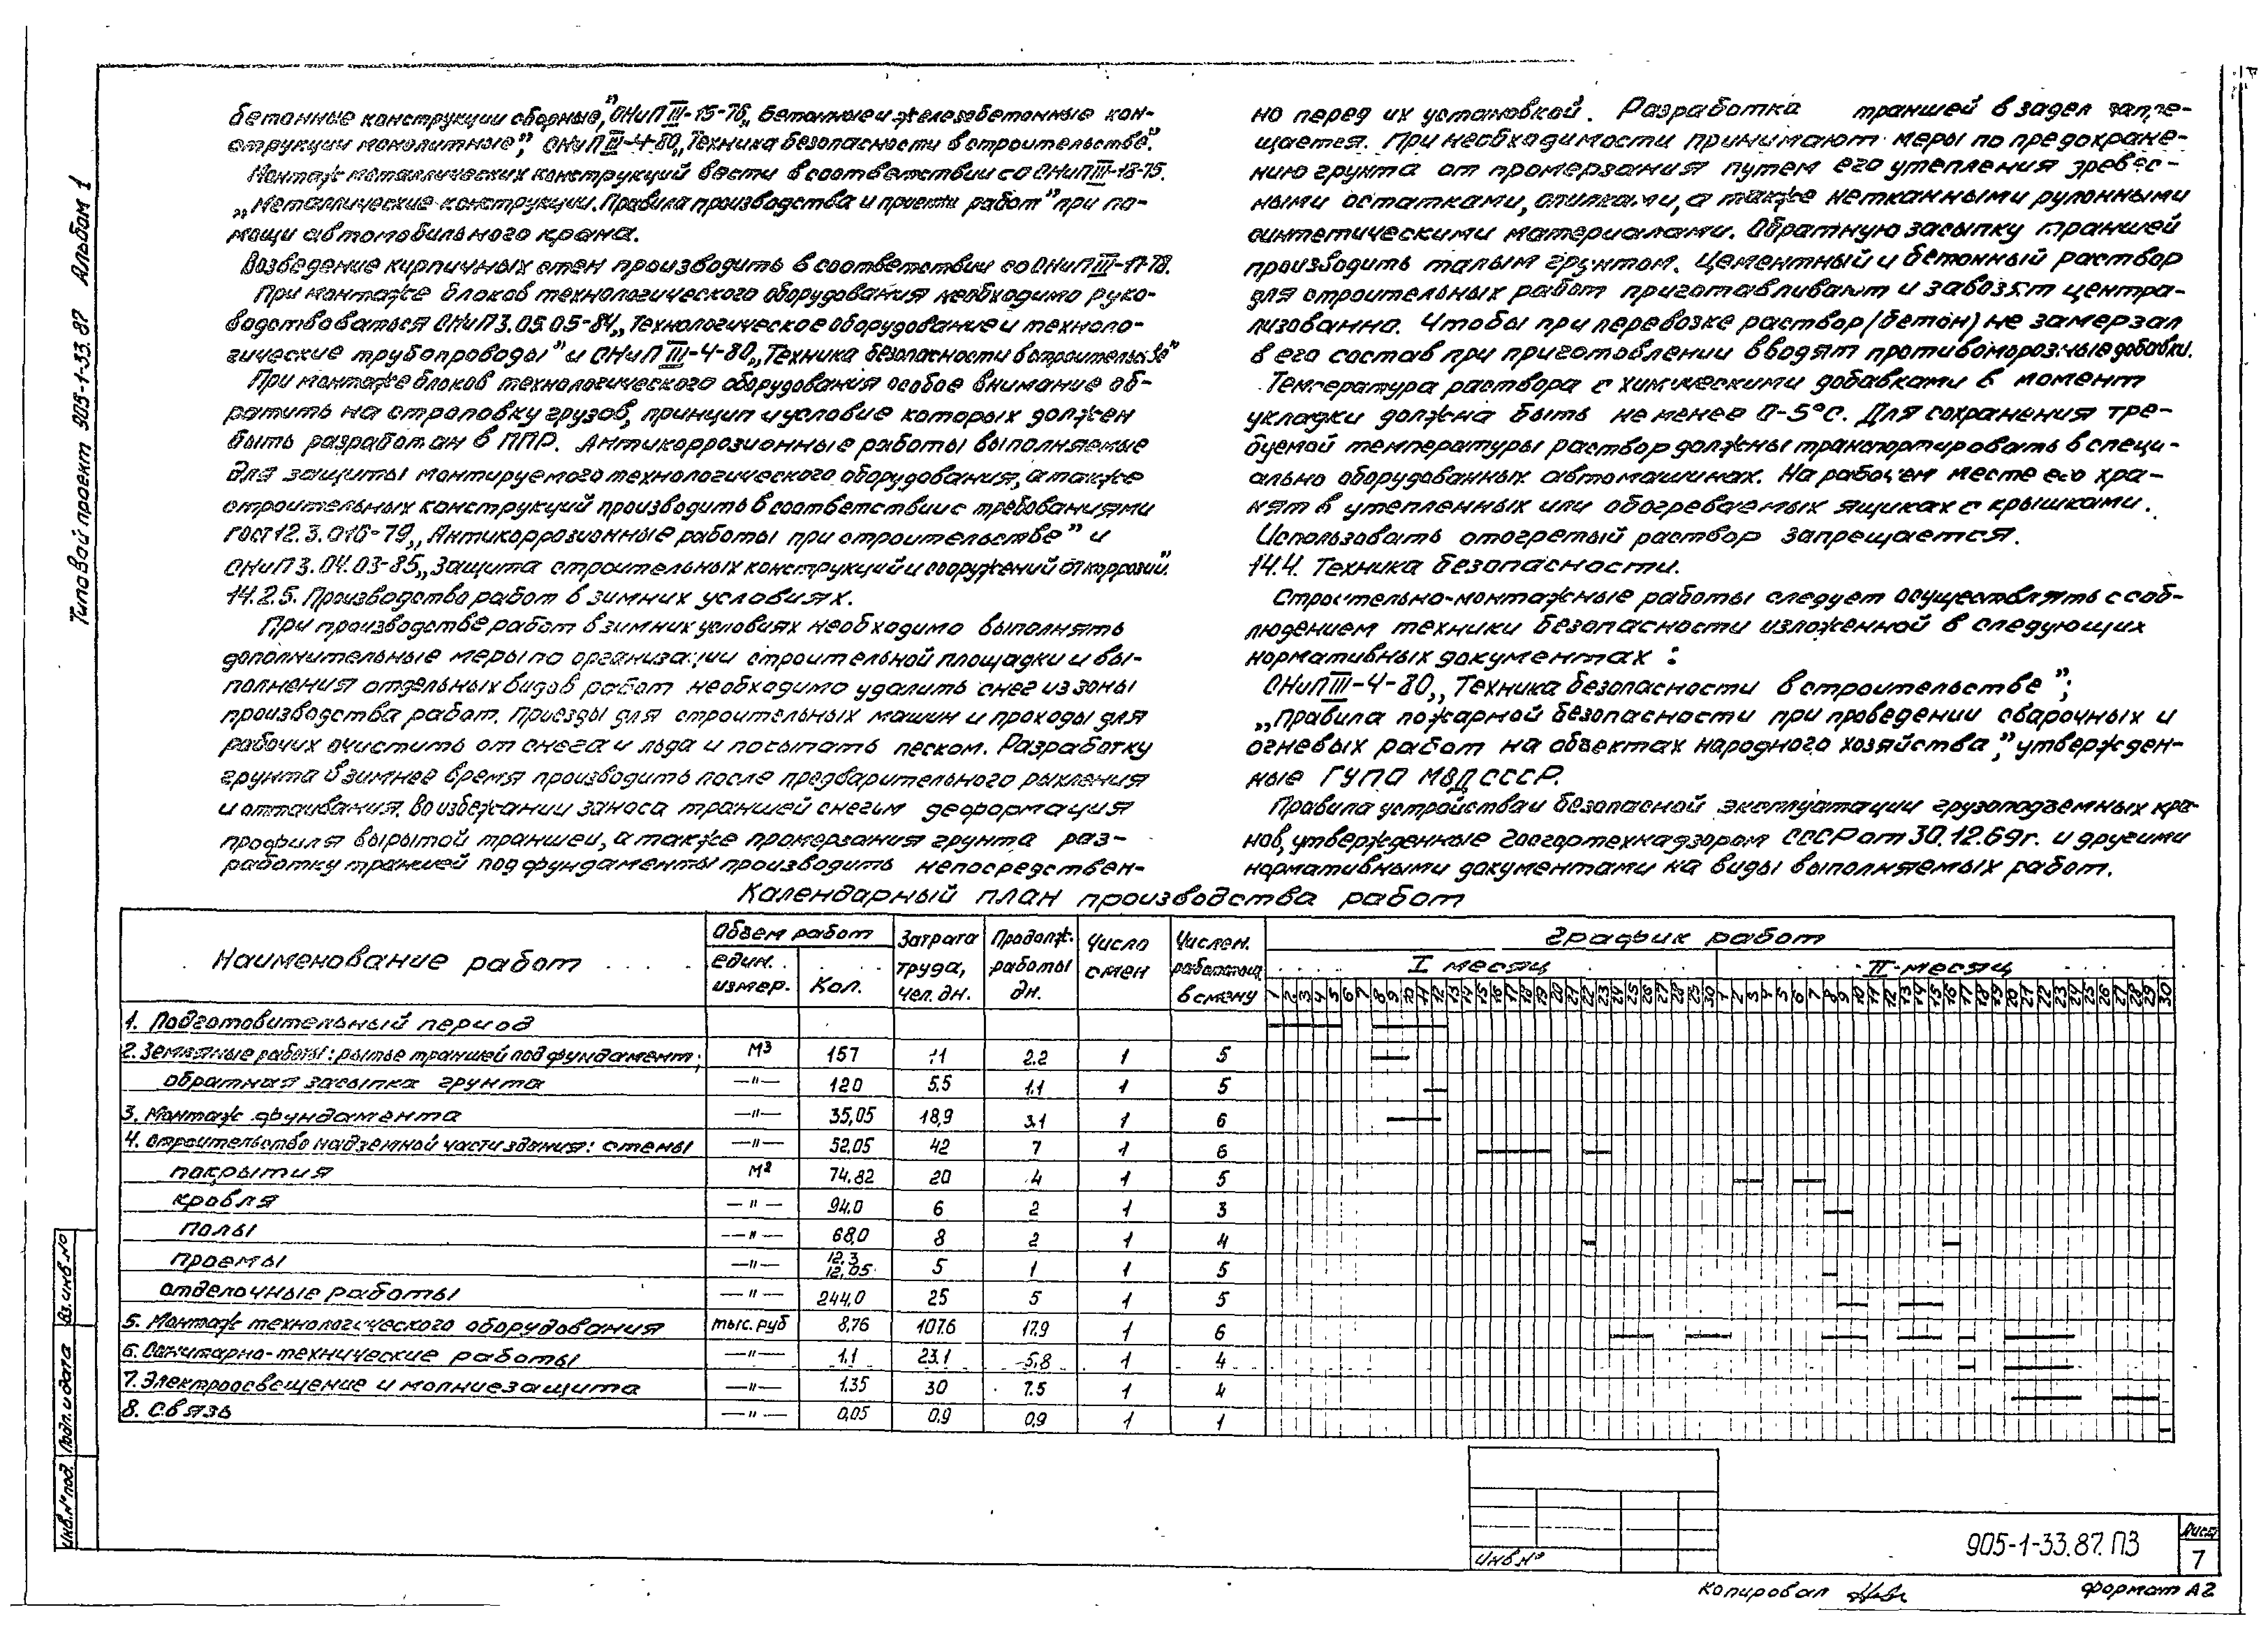 Типовой проект 905-1-33.87 Альбом 1
бетонные конструкции сборные", СНиП III-15-76 „Бетонные и железобетонные кон-
струкции монолитные", СНиП III-4-80 „Техника безопасности в строительстве".
Монтаж металлических конструкций вести в соответствии со СНиП III-18-75.
„Металлические конструкции. Правила производства и приемки работ" при по-
мощи автомобильного крана.
Возведение кирпичных стен производить в соответствии со СНиП III-17-78.
При монтаже блоков технологического оборудования необходимо руко-
водствоваться СНиП 3.05.05-84 „Технологическое оборудование и техноло-
гические трубопроводы" и СНиП III-4-80 „Техника безопасности в строительстве"
При монтаже блоков технологического оборудования особое внимание об-
ратить на строповку грузов, принцип и условие которых должен
быть разработан в ППР. Антикоррозионные работы выполняемые
для защиты монтируемого технологического оборудования, а также
строительных конструкций производить в соответствии с требованиями
ГОСТ 12.3.016-79 „Антикоррозионные работы при строительстве" и
СНиП 3.04.03-85 „Защита строительных конструкций и сооружений от коррозии".
14.2.5. Производство работ в зимних условиях.
При производстве работ в зимних условиях необходимо выполнять
дополнительные меры по организации строительной площадки и вы-
полнения отдельных видов работ необходимо удалить снег из зоны
производства работ. Приезды для строительных машин и проходы для
рабочих очистить от снега и льда и посыпать песком. Разработку
грунта в зимнее время производить после предварительного рыхления
и оттаивания. Во избежании заноса траншей снегом деформация
профиля вырытой траншеи, а также промерзания грунта раз-
работку траншей под фундаменты производить непосредствен-
но перед их установкой. Разработка траншей в задел запре-
щается. При необходимости принимают меры по предохране-
нию грунта от промерзания путем его утепления древес-
ными остатками, опилками, а также нетканными рулонными
синтетическими материалами. Обратную засыпку траншей
производить талым грунтом. Цементный и бетонный раствор
для строительных работ приготавливают и завозят центра-
лизованно. Чтобы при перевозке раствор (бетон) не замерзал
в его состав при приготовлении вводят противоморозные добавки.
Температура раствора с химическими добавками в момент
укладки должна быть не менее 0-5°С. Для сохранения тре-
буемой температуры раствор должны транспортировать в специ-
ально оборудованных автомашинах. На рабочем месте его хра-
нят в утепленных или обогреваемых ящиках с крышками.
Использовать отогретый раствор запрещается.
14.4. Техника безопасности.
Строительно-монтажные работы следует осуществлять с соб-
людением техники безопасности изложенной в следующих
нормативных документах :
СНиП III-4-80 „Техника безопасности в строительстве";
„Правила пожарной безопасности при проведении сварочных и
огневых работ на объектах народного хозяйства", утвержден-
ные ГУПО МВД СССР.
Правила устройства и безопасной эксплуатации грузоподъемных кра-
нов, утвержденные Госгортехнадзором СССР от 30.12.69г. и другими
нормативными документами на виды выполняемых работ.
Календарный план производства работ
Наименование работ Объем работ един. измер. Кол. Затрата труда, чел. дн. Продолж. работы дн. Число смен Числен. работающ. в смену График работ
I месяц II месяц
1 2 3 4 5 6 7 8 9 10 11 12 13 14 15 16 17 18 19 20 21 22 23 24 25 26 27 28 29 30 1 2 3 4 5 6 7 8 9 10 11 12 13 14 15 16 17 18 19 20 21 22 23 24 25 26 27 28 29 30
1. Подготовительный период
2. Земляные работы: рытье траншей под фундамент; М3 157 11 2.2 1 5
обратная засыпка грунта —"— 120 5,5 1.1 1 5
3. Монтаж фундамента —"— 35,05 18,9 3.1 1 6
4. Строительство надземной части здания: стены —"— 52.05 42 7 1 6
покрытия М2 74.82 20 4 1 5
кровля —"— 94.0 6 2 1 3
полы —"— 68,0 8 2 1 4
проемы —"— 12.3 12,05 5 1 1 5
отделочные работы —"— 244,0 25 5 1 5
5. Монтаж технологического оборудования тыс. руб 8,76 107.6 17.9 1 6
6. Санитарно-технические работы —"— 1.1 23.1 5,8 1 4
7. Электроосвещение и молниезащита —"— 1.35 30 7.5 1 4
8. Связь —"— 0,05 0,9 0,9 1 1
Вз. инв. №
Подп. и дата
Инв. № под.
Инв №
905-1-33.87. ПЗ
Лист
7
Копировал
Формат А2